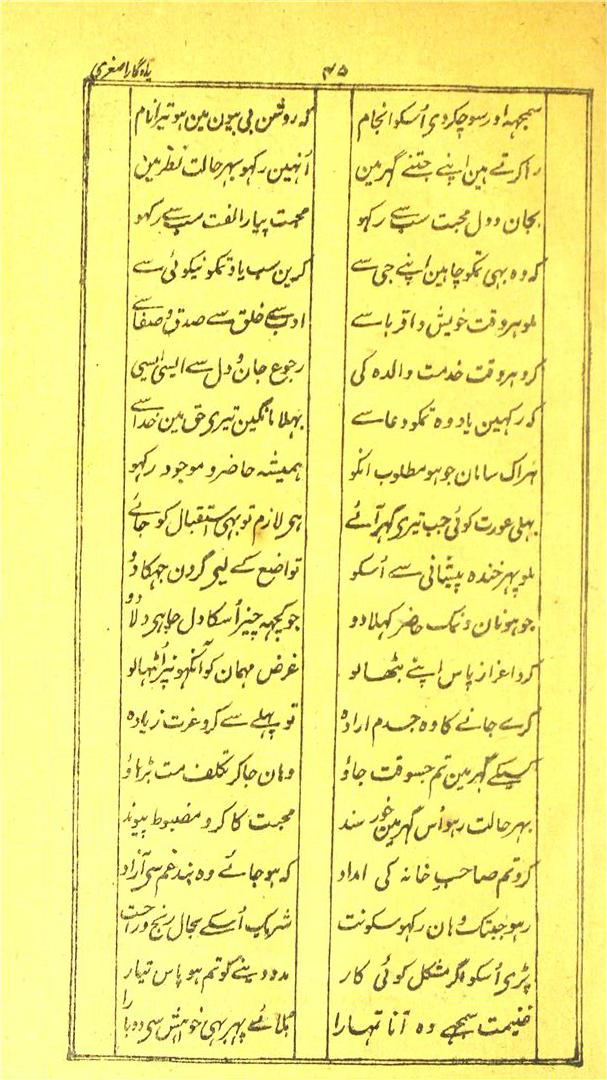 یادگار اصغری ۴۵
سمجہہ اور سوچکر دی اُسکو انجام کہ روشن بی بیون مین ہو تیرا نام
رہا کرتے ہین اپنے جتنے گہر مین اُنہین رکہو بہر حالت نظر مین
بجان و دل محبت سب سے رکہو محبت پیار الفت سب سے رکہو
کہ وہ بہی تمکو چاہین اپنے جی سے کرین سب یاد تمکو نیکوئی سے
ملو ہر وقت خویش و اقربا سے ادب سے خلق سے صدق و صفا سے
کرو ہر وقت خدمت والدہ کی رجوع جان و دل سے ایسی ایسی
کہ رکہین یاد وہ تمکو دعا سے بہلا مانگین تیری حق مین خدا سے
ہر اک سامان جو ہو مطلوب انکو ہمیشہ حاضر و موجود رکہو
بہلی عورت کوئی جب تیری گہر آئے ہی لازم تو بہی استقبال کو جائے
ملو پہر خندہ پیشانی سے اُسکو تواضع کے لیی گردن جہکا دو
جو ہو نان و نمک حاضر کہلا دو جو کچہہ چیز اُسکا دل چاہی دلا دو
کرو اعزاز پاس اپنے بٹھا لو غرض مہمان کو آنکہونپر اُٹہا لو
کرے جانے کا وہ جسدم ارادہ تو پہلے سے کرو عزت زیادہ
کسیکے گہر مین تم جسوقت جاؤ وہان جا کر تکلف مت بڑہاؤ
بہر حالت رہو اُس گہر مین خورسند محبت کا کرو مضبوط پیوند
کرو تم صاحب خانہ کی امداد کہ ہو جائے وہ بند غم سی آزاد
رہو جبتک وہان رکہو سکونت شریک اُسکے بحال رنج و راحت
پڑی اُسکو اگر مشکل کوئی کار مدد دینے کو تم ہو پاس تیار
غنیمت سمجہے وہ آنا تمہارا بلائے پہر بہی خواہش سی دوبارا